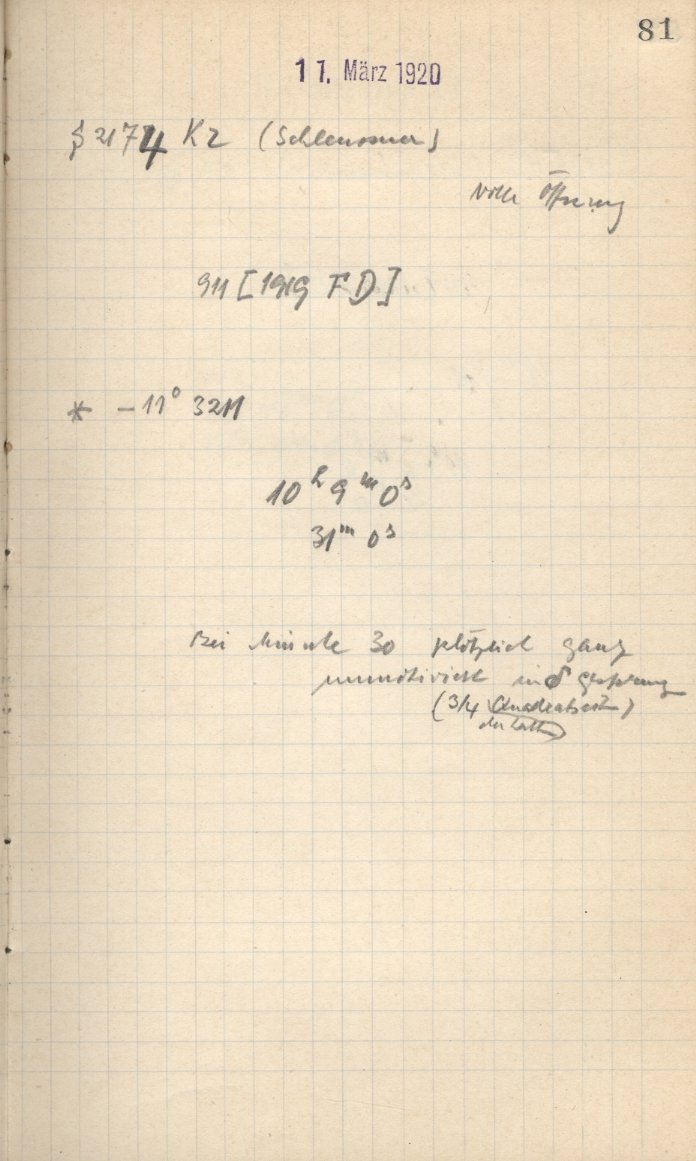 81
17. März 1920
§ 2174 K2 (Schleussner)
Volle Öffnung
911 [1919 FD]
* -11° 3211
10ʰ 9ᵐ 0ˢ
31ᵐ 0ˢ
Bei Minute 30 plötzlich ganz
unmotiviert in δ gesprung
(3/4 Quadratseite)